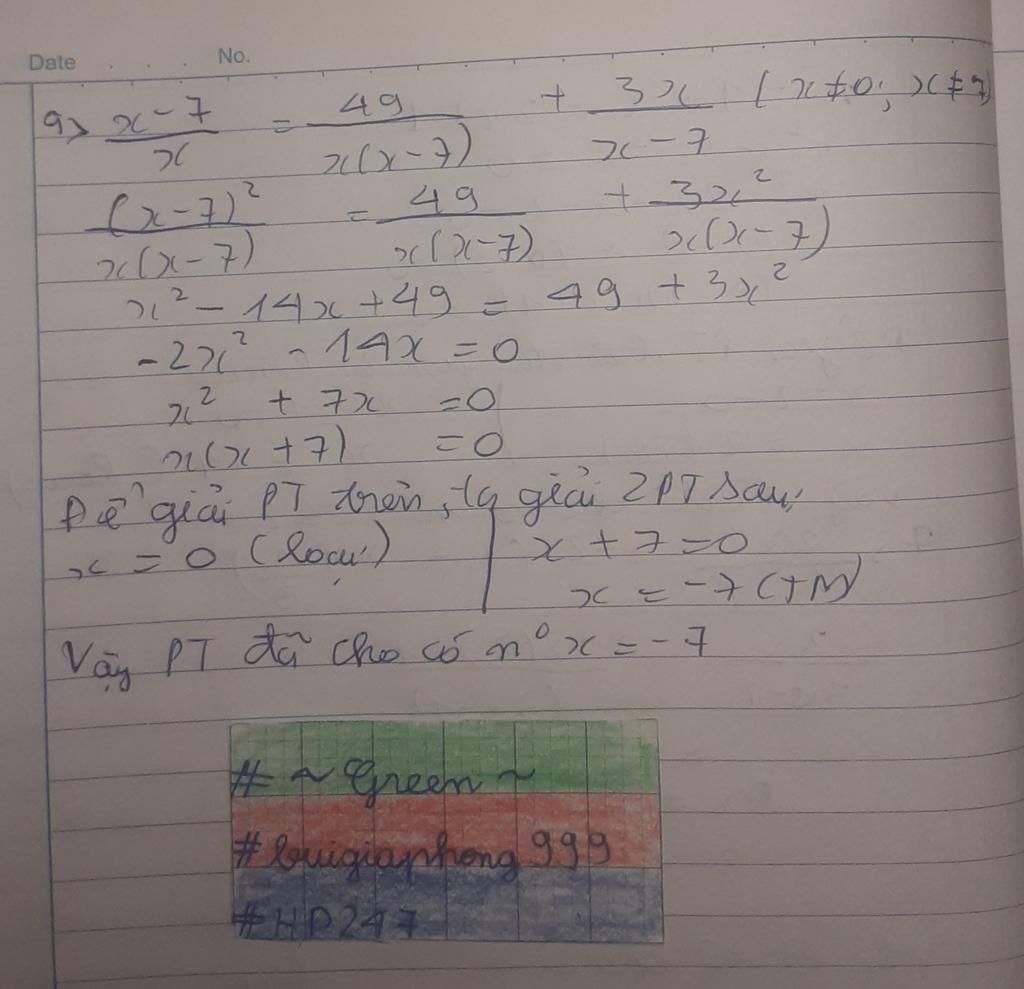 Date . . . No.
9> \frac{x-7}{x} = \frac{49}{x(x-7)} + \frac{3x}{x-7} (x≠0; x≠7)
\frac{(x-7)^2}{x(x-7)} = \frac{49}{x(x-7)} + \frac{3x^2}{x(x-7)}
x² - 14x + 49 = 49 + 3x²
-2x² - 14x = 0
x² + 7x = 0
x(x+7) = 0
Để giải PT trên, ta giải 2PT sau:
x = 0 (loại) | x + 7 = 0
x = -7 (TM)
Vậy PT đã cho có n° x = -7
# ~ Green ~
#buigiaphong999
#HP247